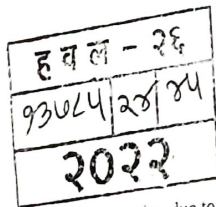 ह व ल - २६
१३७८५ २४ ४५
२०२२